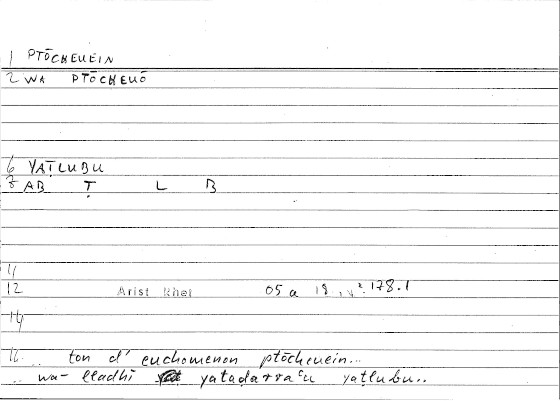 1 PTŌCHEUEIN
2 WA PTŌCHEUŌ
6 YAṬLUBU
8 AB Ṭ L B
11
12 Arist Rhet 05 a 18 178.1
14
16 .. ton d' euchomenon ptōcheuein...
.. wa- lladhī yataḍarraʿu yaṭlubu..